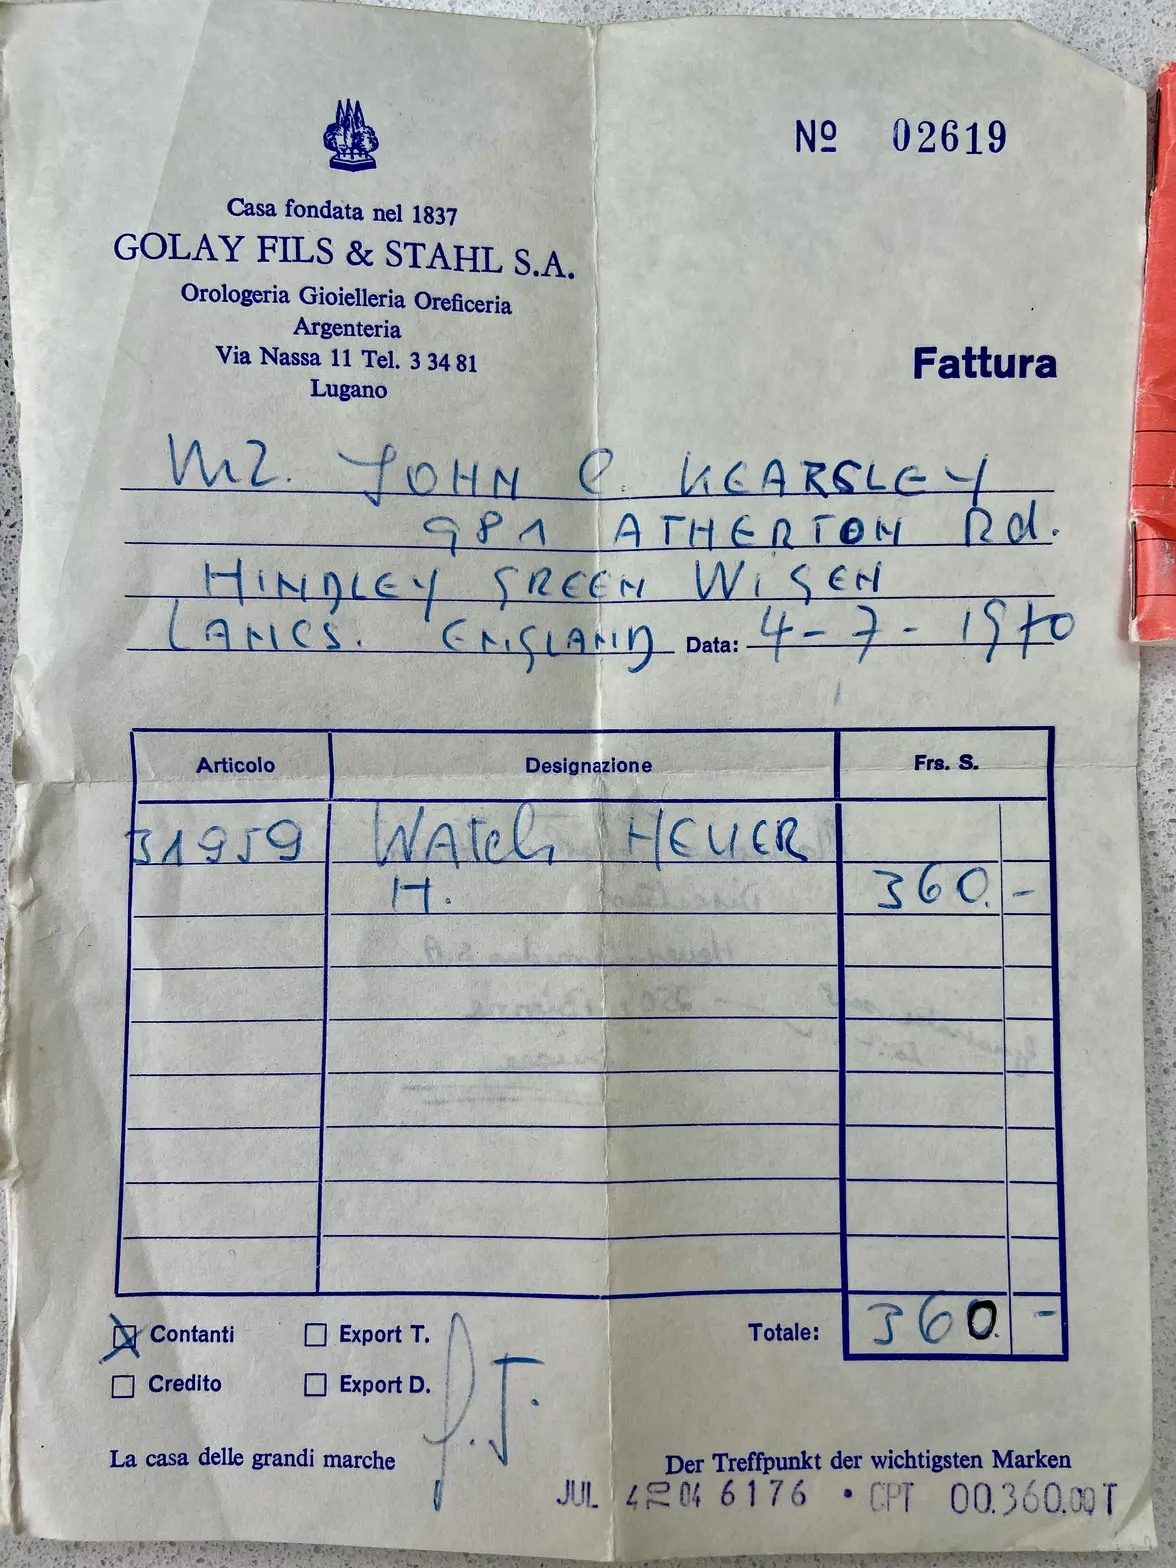 Nº 02619
Casa fondata nel 1837
GOLAY FILS & STAHL S.A.
Orologeria Gioielleria Oreficeria
Argenteria
Via Nassa 11 Tel. 3 34 81
Lugano
Fattura
Mr. JOHN C. KEARSLEY
981 ATHERTON Rd.
HINDLEY GREEN WIGEN
LANCS. ENGLAND Data: 4-7-1970
Articolo Designazione Frs. S.
31959 WATch HEUER
H. 360.-
Totale: 360.-
Contanti Export T.
Credito Export D.
J.T.
La casa delle grandi marche Der Treffpunkt der wichtigsten Marken
JUL 4 70 04 6176 • CPT 00.360.00T